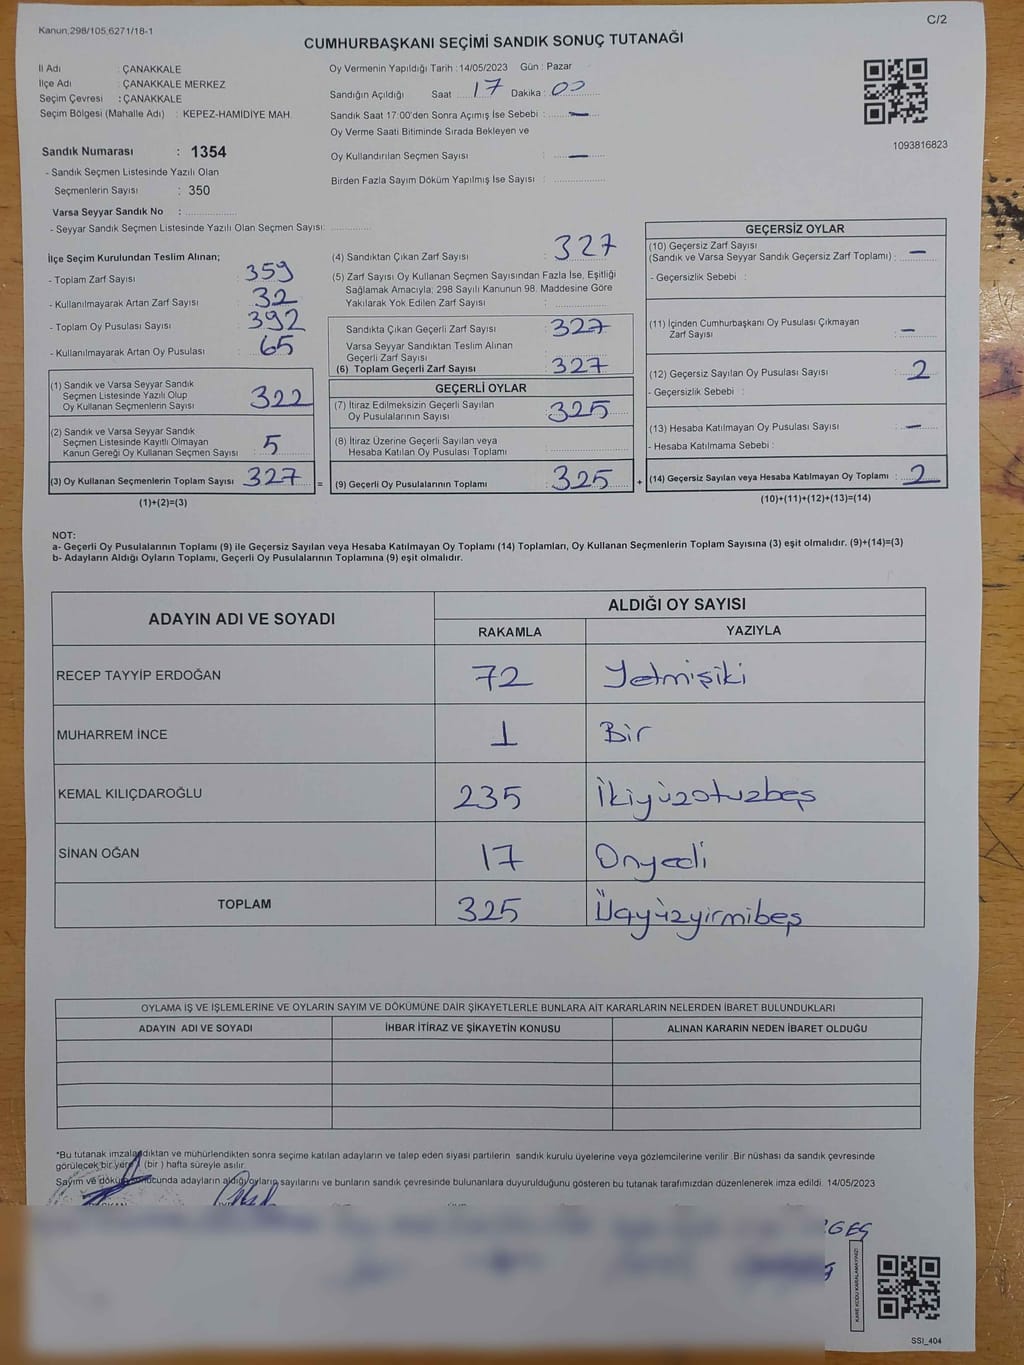 Kanun,298/105,6271/18-1
C/2
CUMHURBAŞKANI SEÇİMİ SANDIK SONUÇ TUTANAĞI
İl Adı : ÇANAKKALE
İlçe Adı : ÇANAKKALE MERKEZ
Seçim Çevresi : ÇANAKKALE
Seçim Bölgesi (Mahalle Adı) : KEPEZ-HAMİDİYE MAH.
Sandık Numarası : 1354
- Sandık Seçmen Listesinde Yazılı Olan
Seçmenlerin Sayısı : 350
Varsa Seyyar Sandık No : ..................
- Seyyar Sandık Seçmen Listesinde Yazılı Olan Seçmen Sayısı: .............
Oy Vermenin Yapıldığı Tarih : 14/05/2023 Gün : Pazar
Sandığın Açıldığı Saat 17 Dakika : 00
Sandık Saat 17:00'den Sonra Açımış İse Sebebi : —
Oy Verme Saati Bitiminde Sırada Bekleyen ve
Oy Kullandırılan Seçmen Sayısı : —
Birden Fazla Sayım Döküm Yapılmış İse Sayısı : ..................
1093816823
İlçe Seçim Kurulundan Teslim Alınan;
- Toplam Zarf Sayısı : 359
- Kullanılmayarak Artan Zarf Sayısı : 32
- Toplam Oy Pusulası Sayısı : 392
- Kullanılmayarak Artan Oy Pusulası : 65
(1) Sandık ve Varsa Seyyar Sandık
Seçmen Listesinde Yazılı Olup
Oy Kullanan Seçmenlerin Sayısı : 322
(2) Sandık ve Varsa Seyyar Sandık
Seçmen Listesinde Kayıtlı Olmayan
Kanun Gereği Oy Kullanan Seçmen Sayısı : 5
(3) Oy Kullanan Seçmenlerin Toplam Sayısı : 327 =
(1)+(2)=(3)
(4) Sandıktan Çıkan Zarf Sayısı : 327
(5) Zarf Sayısı Oy Kullanan Seçmen Sayısından Fazla İse, Eşitliği
Sağlamak Amacıyla; 298 Sayılı Kanunun 98. Maddesine Göre
Yakılarak Yok Edilen Zarf Sayısı : ..................
Sandıkta Çıkan Geçerli Zarf Sayısı : 327
Varsa Seyyar Sandıktan Teslim Alınan
Geçerli Zarf Sayısı : ..................
(6) Toplam Geçerli Zarf Sayısı : 327
GEÇERLİ OYLAR
(7) İtiraz Edilmeksizin Geçerli Sayılan
Oy Pusulalarının Sayısı : 325
(8) İtiraz Üzerine Geçerli Sayılan veya
Hesaba Katılan Oy Pusulası Toplamı : ..................
(9) Geçerli Oy Pusulalarının Toplamı : 325 +
GEÇERSİZ OYLAR
(10) Geçersiz Zarf Sayısı
(Sandık ve Varsa Seyyar Sandık Geçersiz Zarf Toplamı) : —
- Geçersizlik Sebebi :
(11) İçinden Cumhurbaşkanı Oy Pusulası Çıkmayan
Zarf Sayısı : —
(12) Geçersiz Sayılan Oy Pusulası Sayısı : 2
- Geçersizlik Sebebi :
(13) Hesaba Katılmayan Oy Pusulası Sayısı : —
- Hesaba Katılmama Sebebi :
(14) Geçersiz Sayılan veya Hesaba Katılmayan Oy Toplamı : 2
(10)+(11)+(12)+(13)=(14)
NOT:
a- Geçerli Oy Pusulalarının Toplamı (9) ile Geçersiz Sayılan veya Hesaba Katılmayan Oy Toplamı (14) Toplamları, Oy Kullanan Seçmenlerin Toplam Sayısına (3) eşit olmalıdır. (9)+(14)=(3)
b- Adayların Aldığı Oyların Toplamı, Geçerli Oy Pusulalarının Toplamına (9) eşit olmalıdır.
ADAYIN ADI VE SOYADI
ALDIĞI OY SAYISI
RAKAMLA YAZIYLA
RECEP TAYYİP ERDOĞAN 72 Yetmişiki
MUHARREM İNCE 1 Bir
KEMAL KILIÇDAROĞLU 235 İkiyüzotuzbeş
SİNAN OĞAN 17 Onyedi
TOPLAM 325 Üçyüzyirmibeş
OYLAMA İŞ VE İŞLEMLERİNE VE OYLARIN SAYIM VE DÖKÜMÜNE DAİR ŞİKAYETLERLE BUNLARA AİT KARARLARIN NELERDEN İBARET BULUNDUKLARI
ADAYIN ADI VE SOYADI İHBAR İTİRAZ VE ŞİKAYETİN KONUSU ALINAN KARARIN NEDEN İBARET OLDUĞU
*Bu tutanak imzalandıktan ve mühürlendikten sonra seçime katılan adayların ve talep eden siyasi partilerin sandık kurulu üyelerine veya gözlemcilerine verilir. Bir nüshası da sandık çevresinde
görülecek bir yere 1 (bir ) hafta süreyle asılır.
Sayım ve döküm sonucunda adayların aldığı oyların sayılarını ve bunların sandık çevresinde bulunanlara duyurulduğunu gösteren bu tutanak tarafımızdan düzenlenerek imza edildi. 14/05/2023
KARE KODU KARALAMAYINIZ!
SSI_404